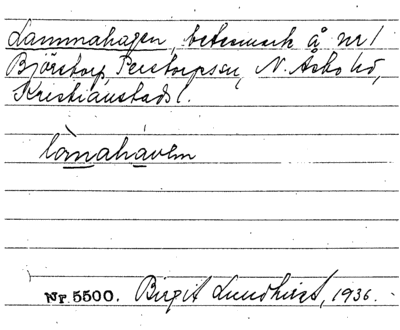 Lammahagen, betesmark å nr 1
Björstorp, Perstorps sn, N. Åsbo hd,
Kristianstads l.
lànahávem
Nr. 5500. Birgit Lundkvist, 1936.